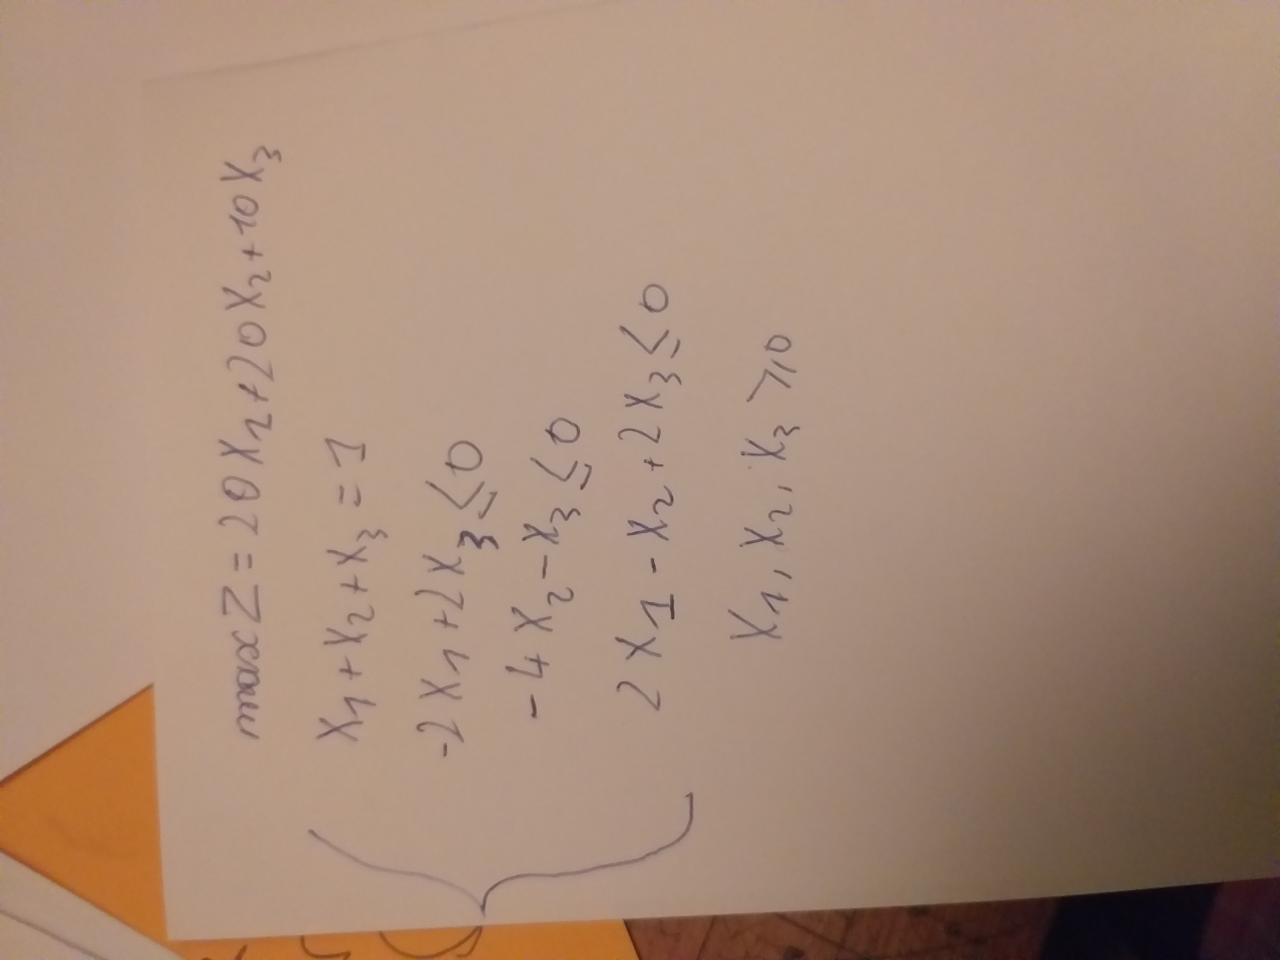 max Z = 20 X2 + 20 X2 + 10 X3
X1 + X2 + X3 = 1
-2 X1 + 2 X3 ≤ 0
-4 X2 - X3 ≤ 0
2 X1 - X2 + 2 X3 ≤ 0
X1, X2, X3 ≥ 0